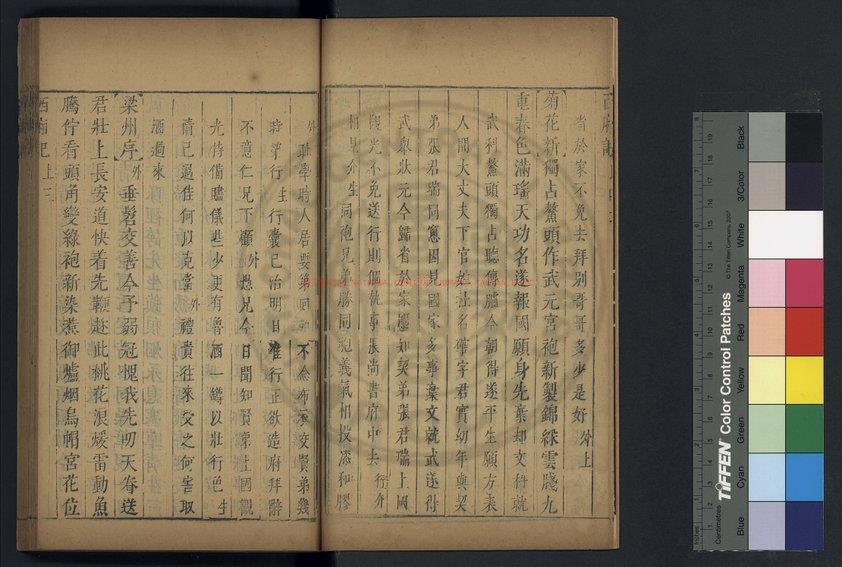 者於家不免去拜別哥哥多少是好 外上
菊花新獨占鰲頭作武元宮袍新製錦綵雲牋九
重春色滿瑤天功名遂報國願身先棄却文科就
武科鰲頭獨占聽傳臚今朝得遂平生願方表
人間大丈夫下官姓 名 字君實幼年與契
弟張君瑞同窓因見國家多事棄文就武遂得
武舉狀元今歸省於家 知契弟張君瑞上國
觀光不免送行則個 張尚書府中去 行介
相見介生同袍兄弟勝同胞義氣相投漆和膠
外 時人居要第
時 行 生行囊已治明日准行正欲造府拜辭
不意仁兄下顧 外愚兄今日聞知賢弟上國觀
光特備贐儀些少更有魯酒一罇以壯行色 生
已過佳何以克當 外禮貴往來受之何害取
酒過來
梁州序 外垂髫交善今予弱冠愧我先叨天眷送
君壯上長安道快着先鞭趂此桃花浪煖雷動魚
騰佇看頭角變綠袍新染惹御爐烟烏帽宮花位
西廂記 上 三
Tiffen Color Control Patches
© The Tiffen Company, 2007
Blue
Cyan
Green
Yellow
Red
Magenta
White
3/Color
Black
Inches
Centimetres